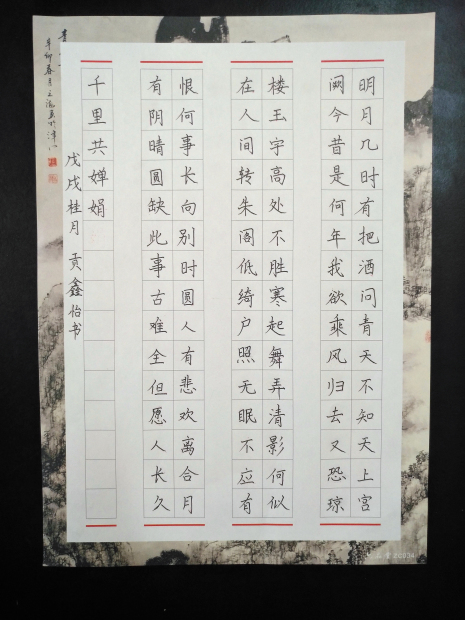 明月几时有把酒问青天不知天上宫
阙今昔是何年我欲乘风归去又恐琼
楼玉宇高处不胜寒起舞弄清影何似
在人间转朱阁低绮户照无眠不应有
恨何事长向别时圆人有悲欢离合月
有阴晴圆缺此事古难全但愿人长久
千里共婵娟
戊戌桂月 贡鑫怡书
辛卯春月